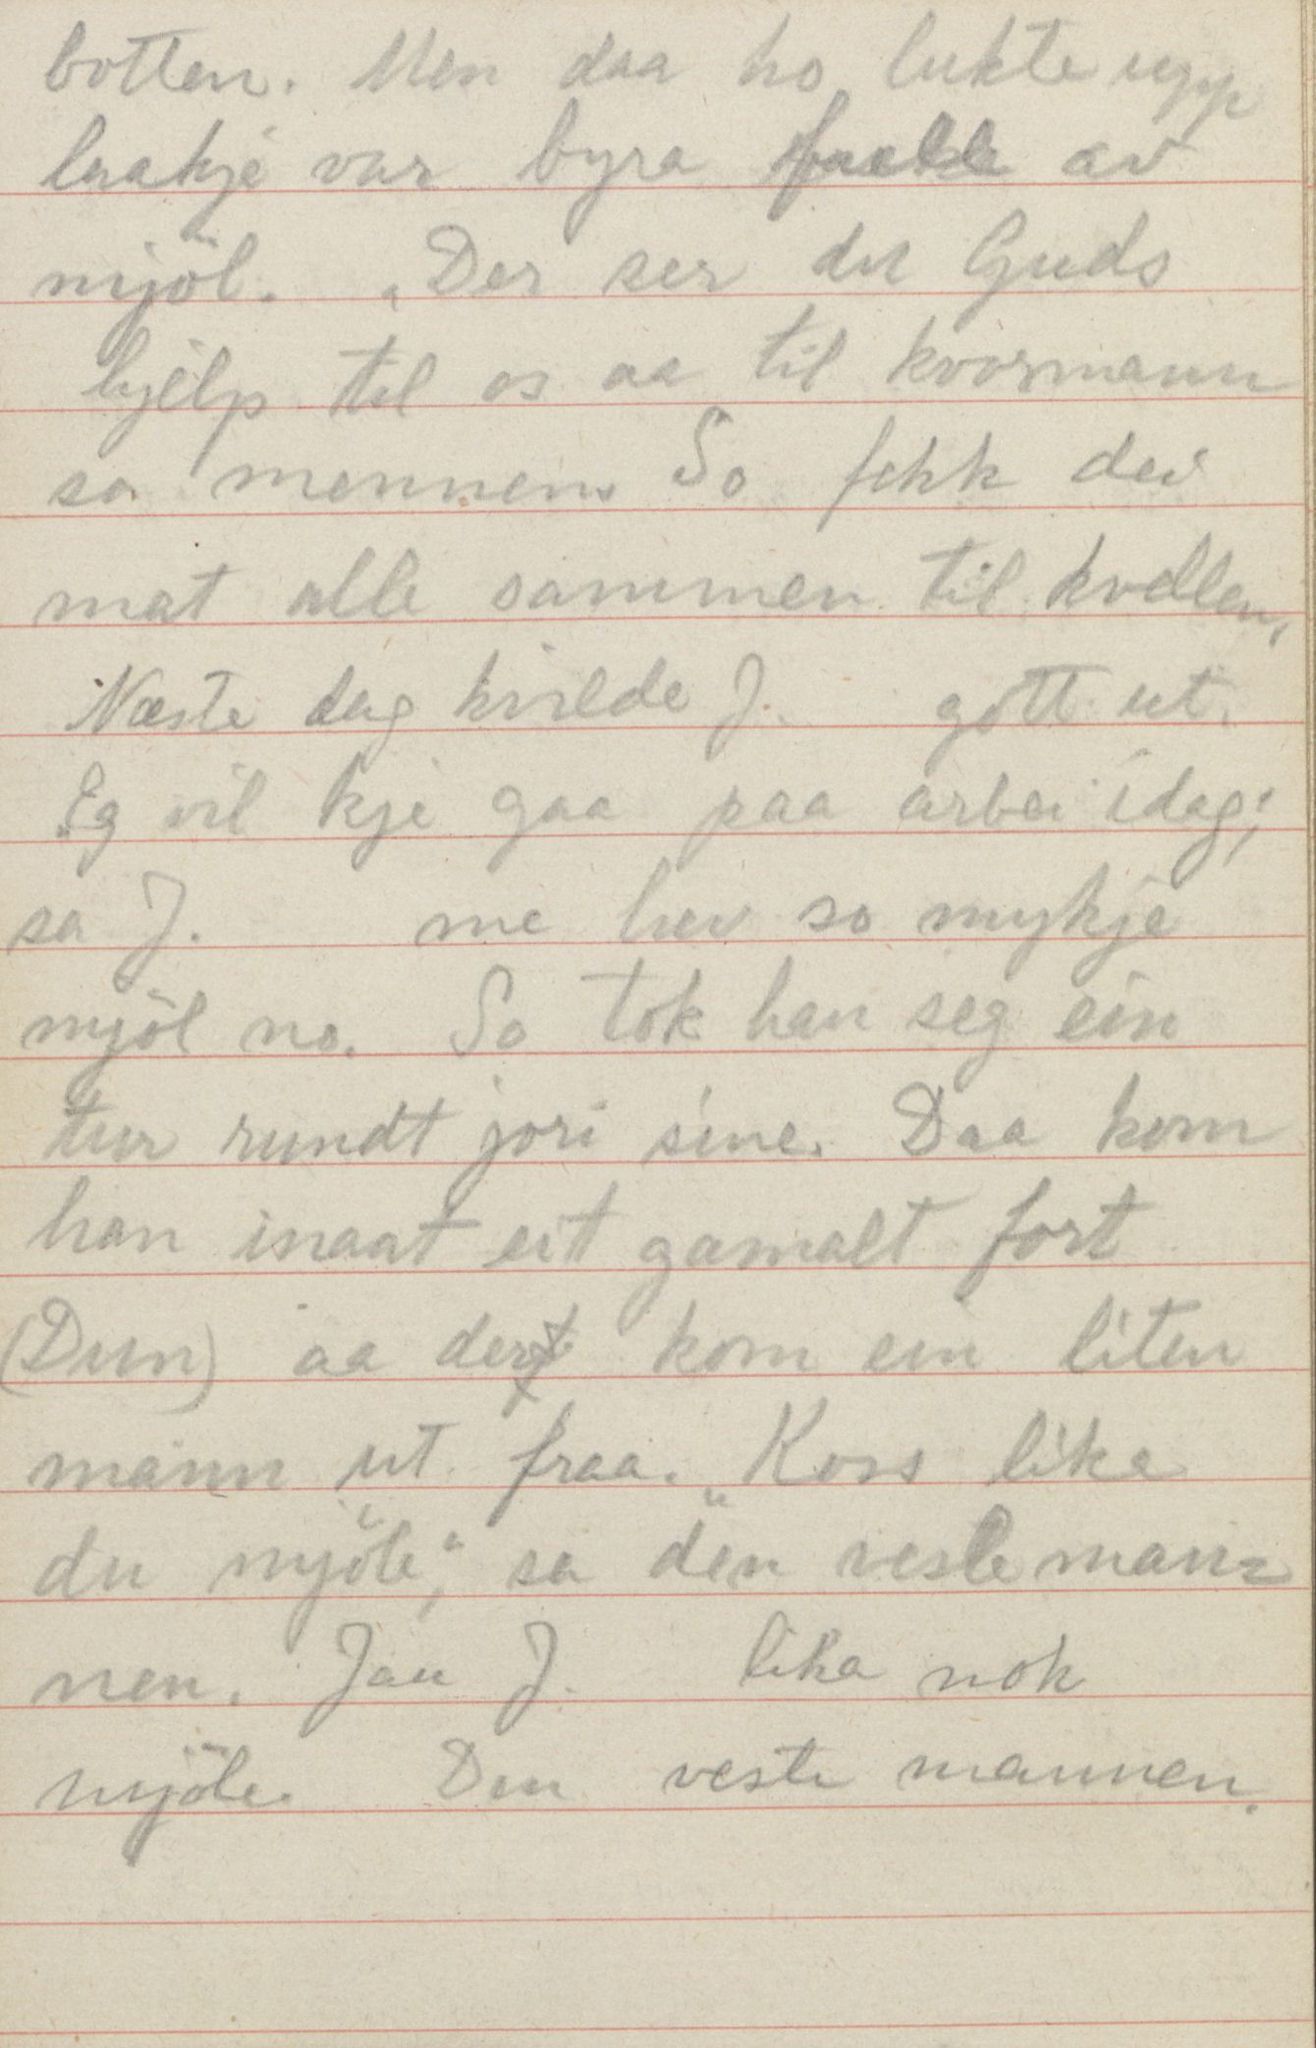 botten. Men daa ho lukte upp
laakje var byra av
mjöl. „Der ser du Guds
hjelp til os aa til kvormann
sa mennen. So fekk dei
mat alle sammen til kvellen,
Næste dag kvilde J. gott ut.
Eg vil kje gaa paa arbei idag;
sa J. me hev so mykje
mjöl no. So tok han seg ein
tur rundt jori sine. Daa kom
han inaat eit gamalt fort
(Dun) aa der kom ein liten
mann ut fraa. „Koss lika
du mjöle," sa den vesle man-
nen. Jau J. lika nok
mjöle. Den vesle mannen.